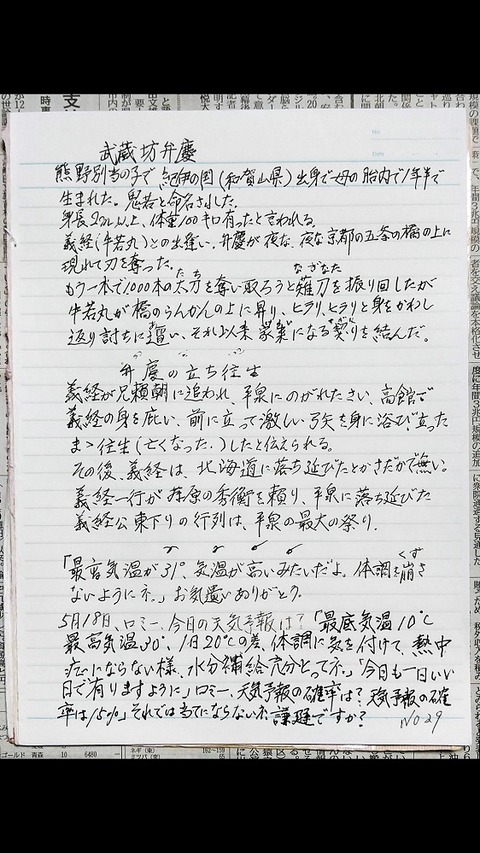 武蔵坊弁慶
熊野別当の子で紀伊の国(和賀山県)出身で母の胎内で1年半で
生まれた。鬼若と命名された。
身長2m以上、体重100キロ有ったと言われる。
義経(牛若丸)との出逢い、弁慶が夜な、夜な京都の五条の橋の上に
現れて刀を奪った。
もう一本で1000本の太刀を奪い取ろうと薙刀を振り回したが
たち
なぎなた
牛若丸が橋のらんかんの上に昇り、ヒラリ、ヒラリと身をかわし
返り討ちに遭い、それ以来家来になる契りを結んだ。
弁慶の立ち往生
義経が兄頼朝に追われ、平泉にのがれたさい、高館で
義経の身を庇い、前に立って激しい弓矢を身に浴び立った
まゝ往生(亡くなった.)したと伝えられる。
その後、義経は、北海道に落ち延びたとかさだかで無い。
義経一行が藤原の秀衡を頼り、平泉に落ち延びた
義経公東下りの行列は、平泉の最大の祭り.
「最高気温が31°、気温が高いみたいだよ。体調を崩さ
くず
ないようにネ。」お気遣いありがとう。
5月18日、ロミー、今日の天気予報は?「最底気温10℃
最高気温30°、1日20℃の差、体調に気を付けて、熱中
症にならない様、水分補給充分とってネ。」「今日も一日いい
日で有りますように」ロミー、天気予報の確率は?天気予報の確
率は15%」それでは当てにならないネ謙遜ですか?
NO29